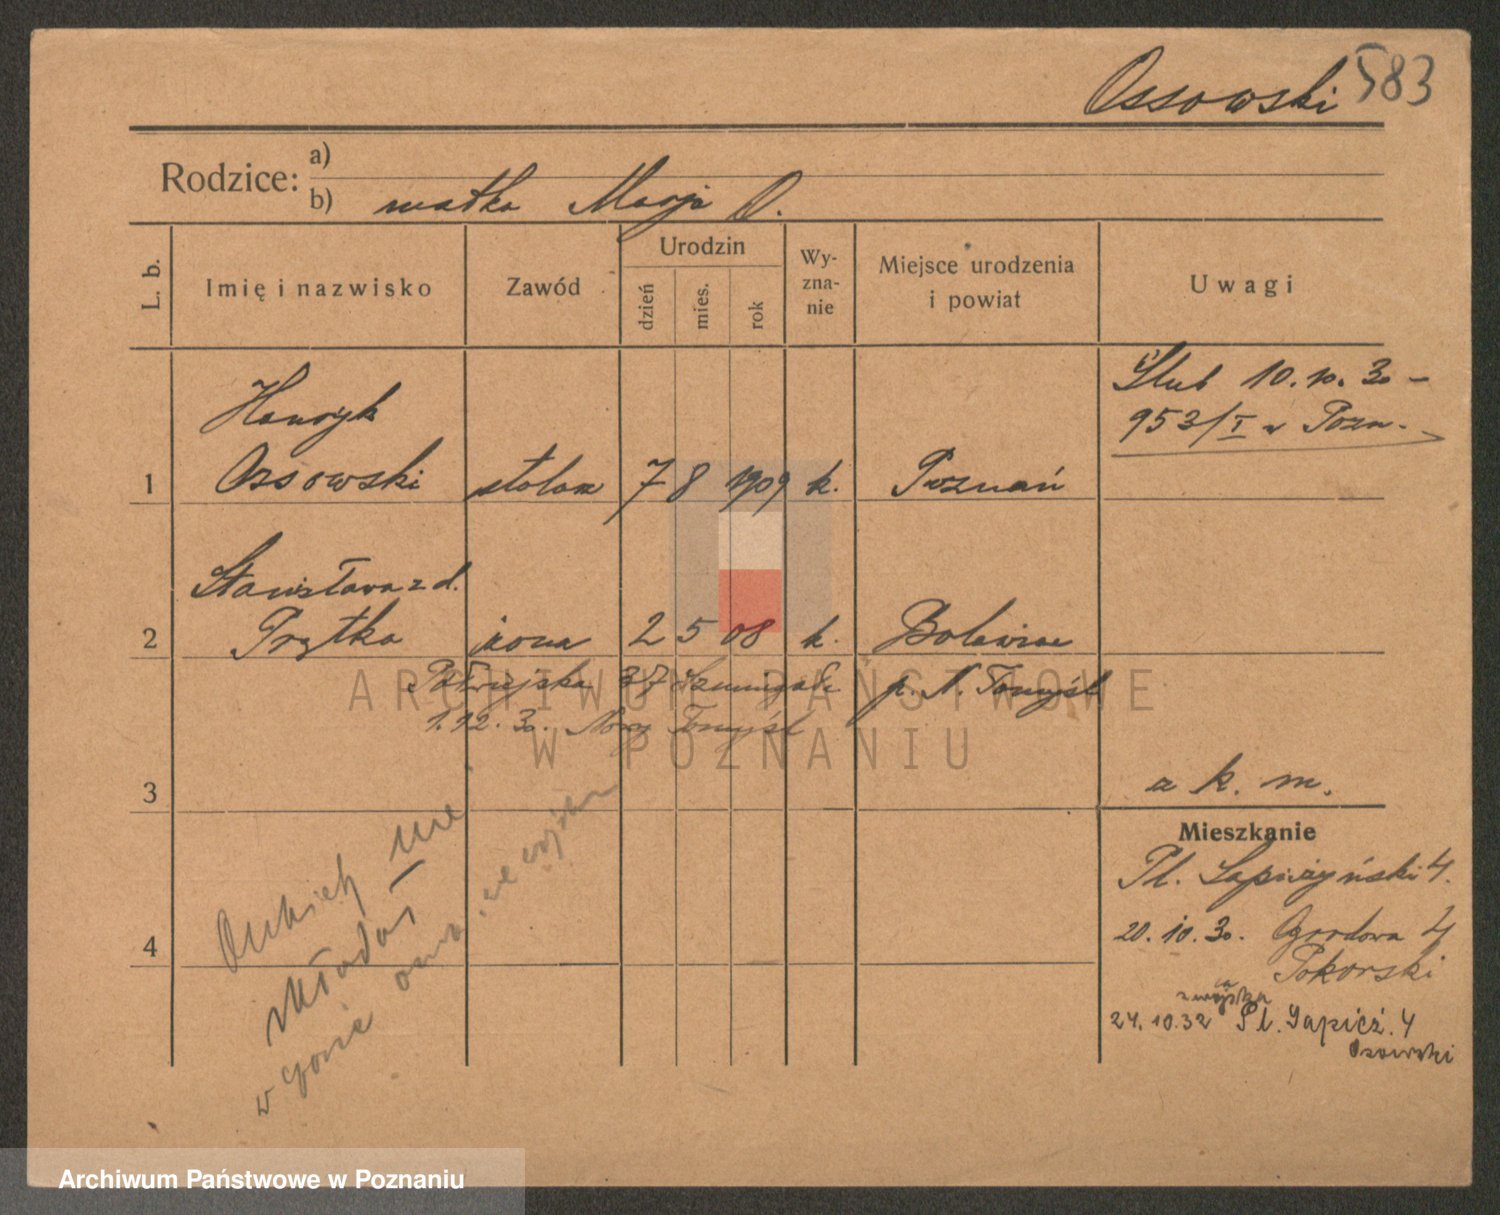 Ossowski 583
Rodzice: a)
b) matka Marja O.
L. b.
Imię i nazwisko
Zawód
Urodzin
dzień
mies.
rok
Wy-
zna-
nie
Miejsce urodzenia
i powiat
Uwagi
Ślub 10.10.30 –
953/I w Pozn.
Henryk
1 Ossowski stolarz 7 8 1909 k. Poznań
Stanisława z d.
2 Prętka żona 2 5 08 k.
37
p. N. Tomyśl
1.12.30. Nowy Tomyśl
ARCHIWUM PAŃSTWOWE
W POZNANIU
3
a k. m.
Mieszkanie
Pl. Sapieżyński 4.
nie
4
20.10.30. Ogrodowa 4
Pokorski
z wojska
24.10.32 Pl. Sapież. 4
Ossowski
Archiwum Państwowe w Poznaniu